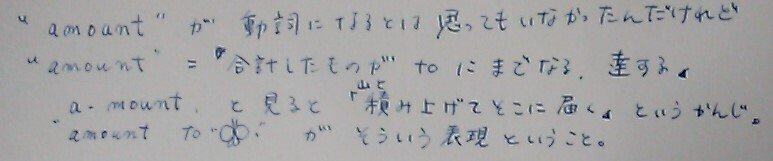 "amount" が 動詞になるとは思ってもいなかったんだけれど
"amount" = 「合計したものが to にまでなる、達する」
a-mount, と見ると 「山と積み上げてそこに届く」というかんじ。
"amount to ○○" が そういう表現ということ。